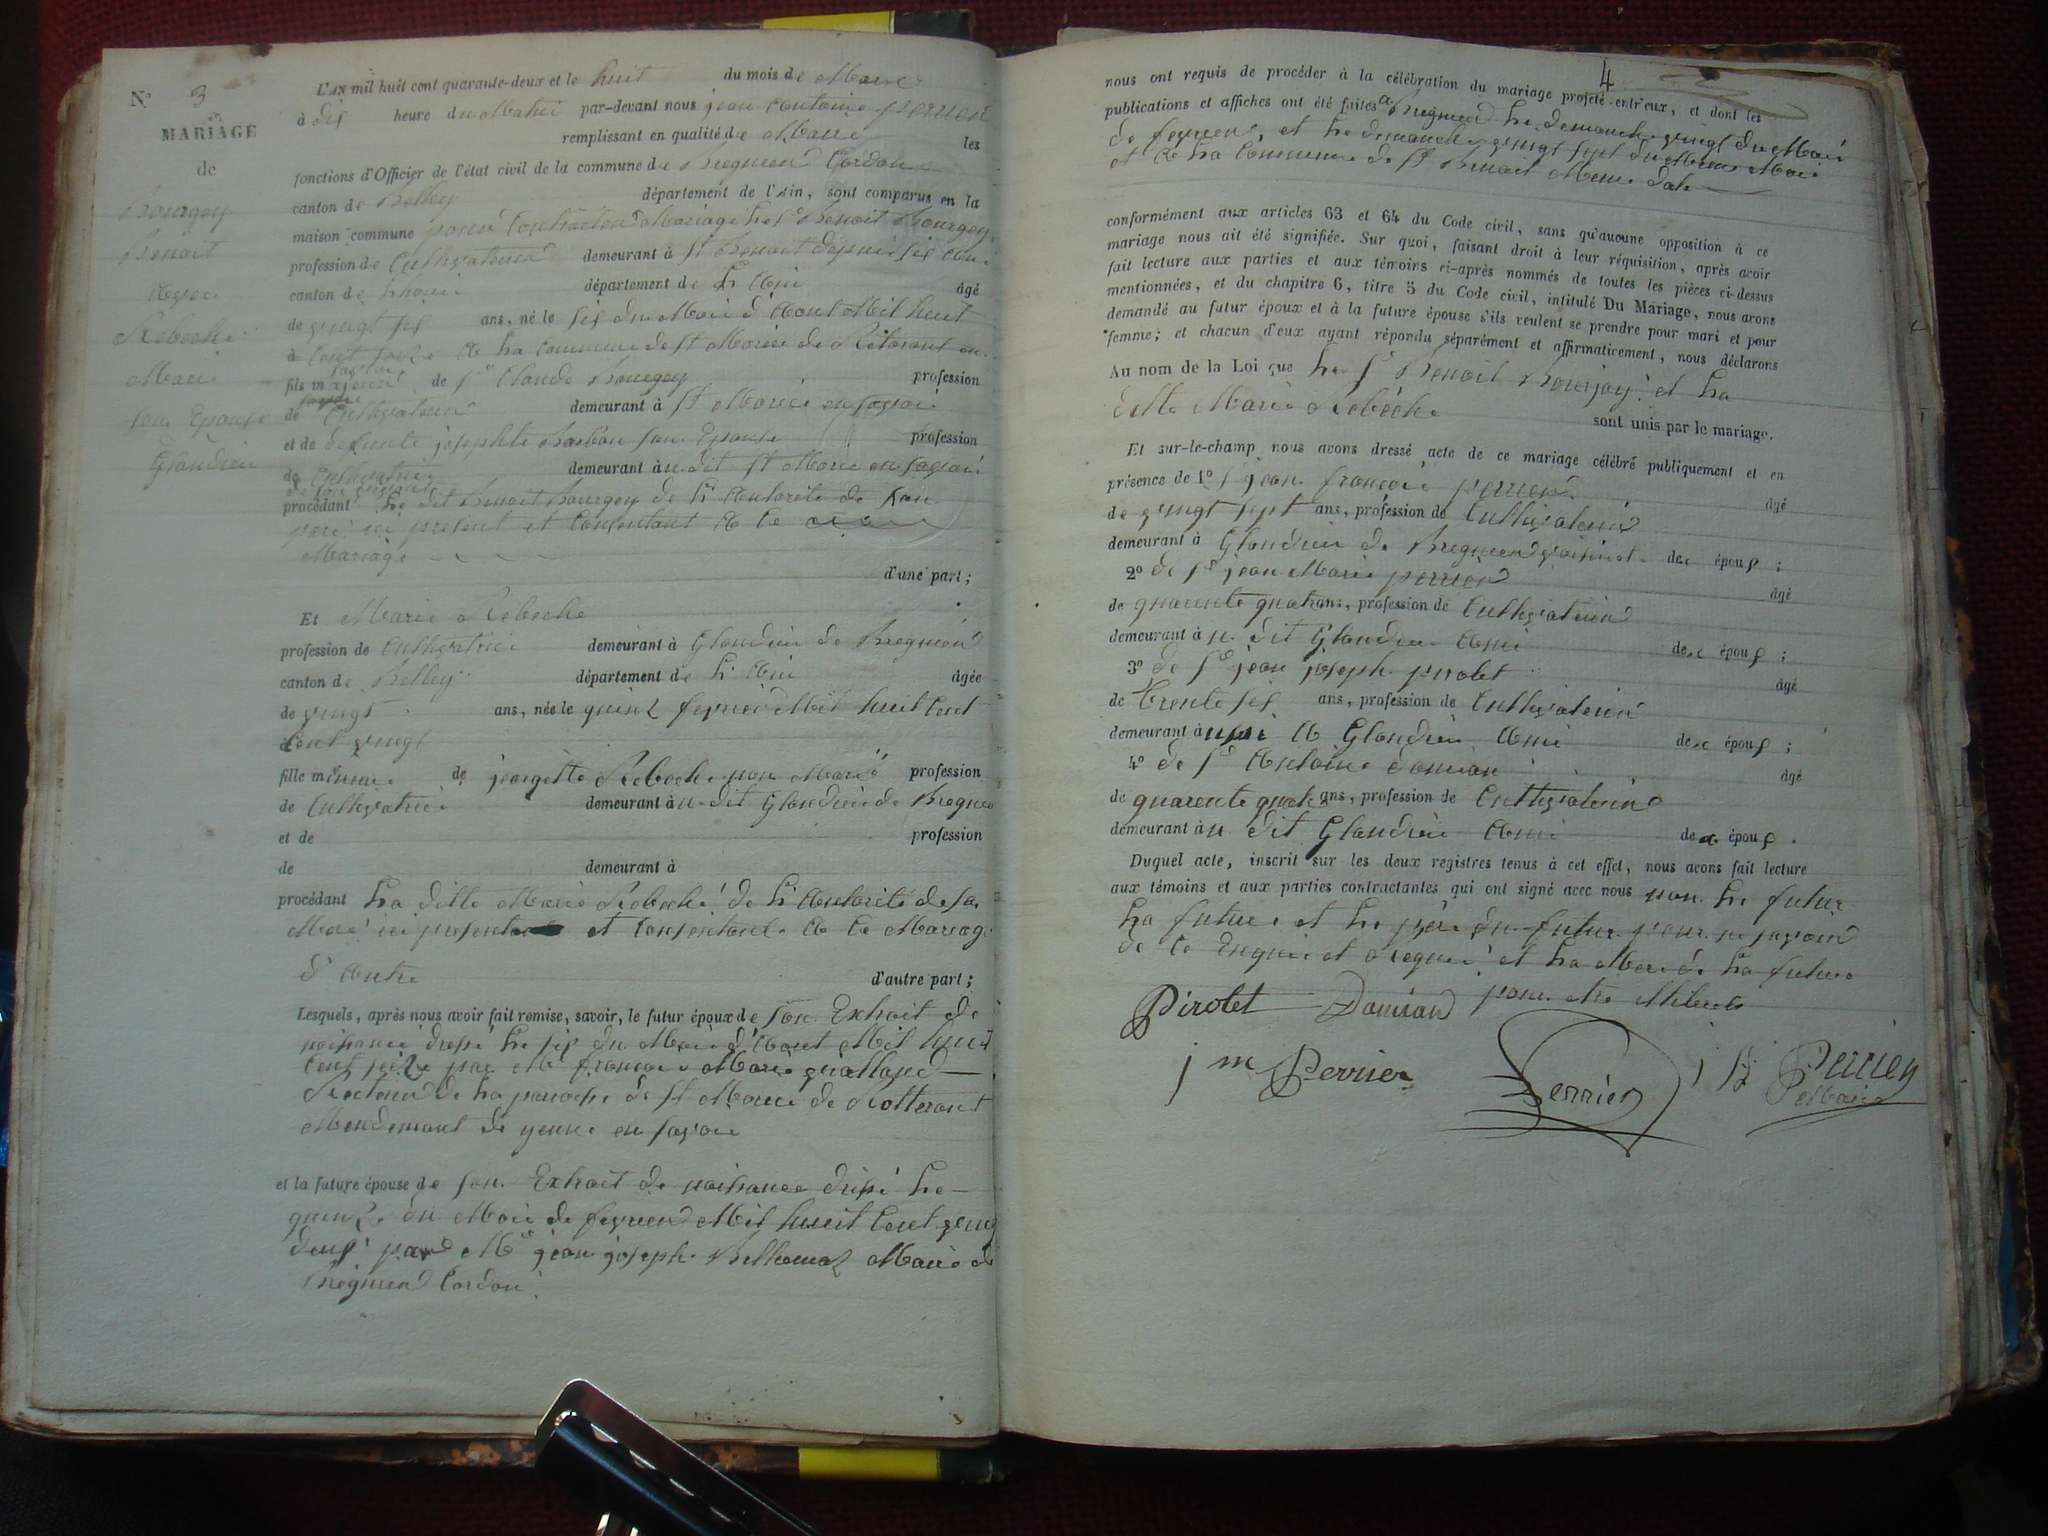 N° 3
MARIAGE
de
Bourgey
Benoit
Avec
Reboche
Marie
son Epouse
Glandieu
L'AN mil huit cent quarante-deux et le huit du mois de Mars
à dix heure du Matin par-devant nous jean Antoine Perrier
remplissant en qualité de Maire les
fonctions d'Officier de l'état civil de la commune de Bregnier Cordon
canton de Belley département de l'Ain, sont comparus en la
maison commune pour Contracter Mariage le Sr Benoit Bourgey
profession de Cultivateur demeurant à St Benoit depuis six ans
canton de Lhuis département de L'Ain âgé
de vingt six ans, né le six du Mois d'Aout Mil huit
à Cent seize A La Commune de St Morice de Rotherant en
savoie
fils majeur de Sr Claude Bourgey profession
de Cultivateur demeurant à St Morice en savoie
et de defunte josephte Barbou son Epouse profession
de Cultivatrice demeurant à u dit St Morice en savoie
de son vivant
procédant Le dit Benoit Bourgey de L'Autorité de son
père ici présent et Consentant A Ce
Mariage
d'une part;
Et Marie Reboche
profession de Cultivatrice demeurant à Glandieu de Bregnier
canton de Belley département de L'Ain âgée
de vingt ans, née le quinze fevrier Mil huit Cent
Cent vingt
fille mineure de jeorgette Reboche non Marié profession
de Cultivatrice demeurant à u dit Glandieu de Bregnier
et de profession
de demeurant à
procédant La dite Marie Reboche de L'Autorité de sa
Mere ici presente et Consentante A Ce Mariage
d'Autre d'autre part;
Lesquels, après nous avoir fait remise, savoir, le futur époux de son Extrait de
naissance dressé Le six du Mois d'Aout Mil huit
Cent seize par Mr francois Marie
Recteur de La paroche de St Morice de Rotherant
Mendement de yenne en savoie
et la future épouse de son Extrait de naissance dressé Le
quinze du Mois de fevrier Mil huit Cent vingt
deux par Mr jean joseph Maire de
Bregnier Cordon
4
nous ont requis de procéder à la célébration du mariage projeté entr'eux, et dont les
publications et affiches ont été faites a Bregnier Le demanche vingt du Mois
de fevrier, et Le demanche vingt sept du Meme Mois
et A La Commune de St Benoit Meme date
conformément aux articles 63 et 64 du Code civil, sans qu'aucune opposition à ce
mariage nous ait été signifiée. Sur quoi, faisant droit à leur réquisition, après avoir
fait lecture aux parties et aux témoins ci-après nommés de toutes les pièces ci-dessus
mentionnées, et du chapitre 6, titre 5 du Code civil, intitulé Du Mariage, nous avons
demandé au futur époux et à la future épouse s'ils veulent se prendre pour mari et pour
femme; et chacun d'eux ayant répondu séparément et affirmativement, nous déclarons
Au nom de la Loi que Le Sr Benoit Bourjay et La
dite Marie Rebèche sont unis par le mariage.
Et sur-le-champ nous avons dressé acte de ce mariage célébré publiquement et en
présence de 1° Sr jean francois perrier âgé
de vingt sept ans, profession de Cultivateur
demeurant à Glandieu de Bregnier voisin des époux;
2° de Sr jean Marie perrier âgé
de quarente quatre ans, profession de Cultivateur
demeurant à u dit Glandieu Ami des époux;
3° de Sr jean joseph pirolet âgé
de trente six ans, profession de Cultivateur
demeurant à ussi A Glandieu Ami des époux;
4° de Sr Antoine damian âgé
de quarente quatre ans, profession de Cultivateur
demeurant à u dit Glandieu Ami des époux.
Duquel acte, inscrit sur les deux registres tenus à cet effet, nous avons fait lecture
aux témoins et aux parties contractantes qui ont signé avec nous non Le futur
La future et Le père du futur pour ne savoir
de Ce Enquis et Requis et La Mere de La future
pour etre
Pirolet Damian
j m Perrier Perrier Perrier
Maire